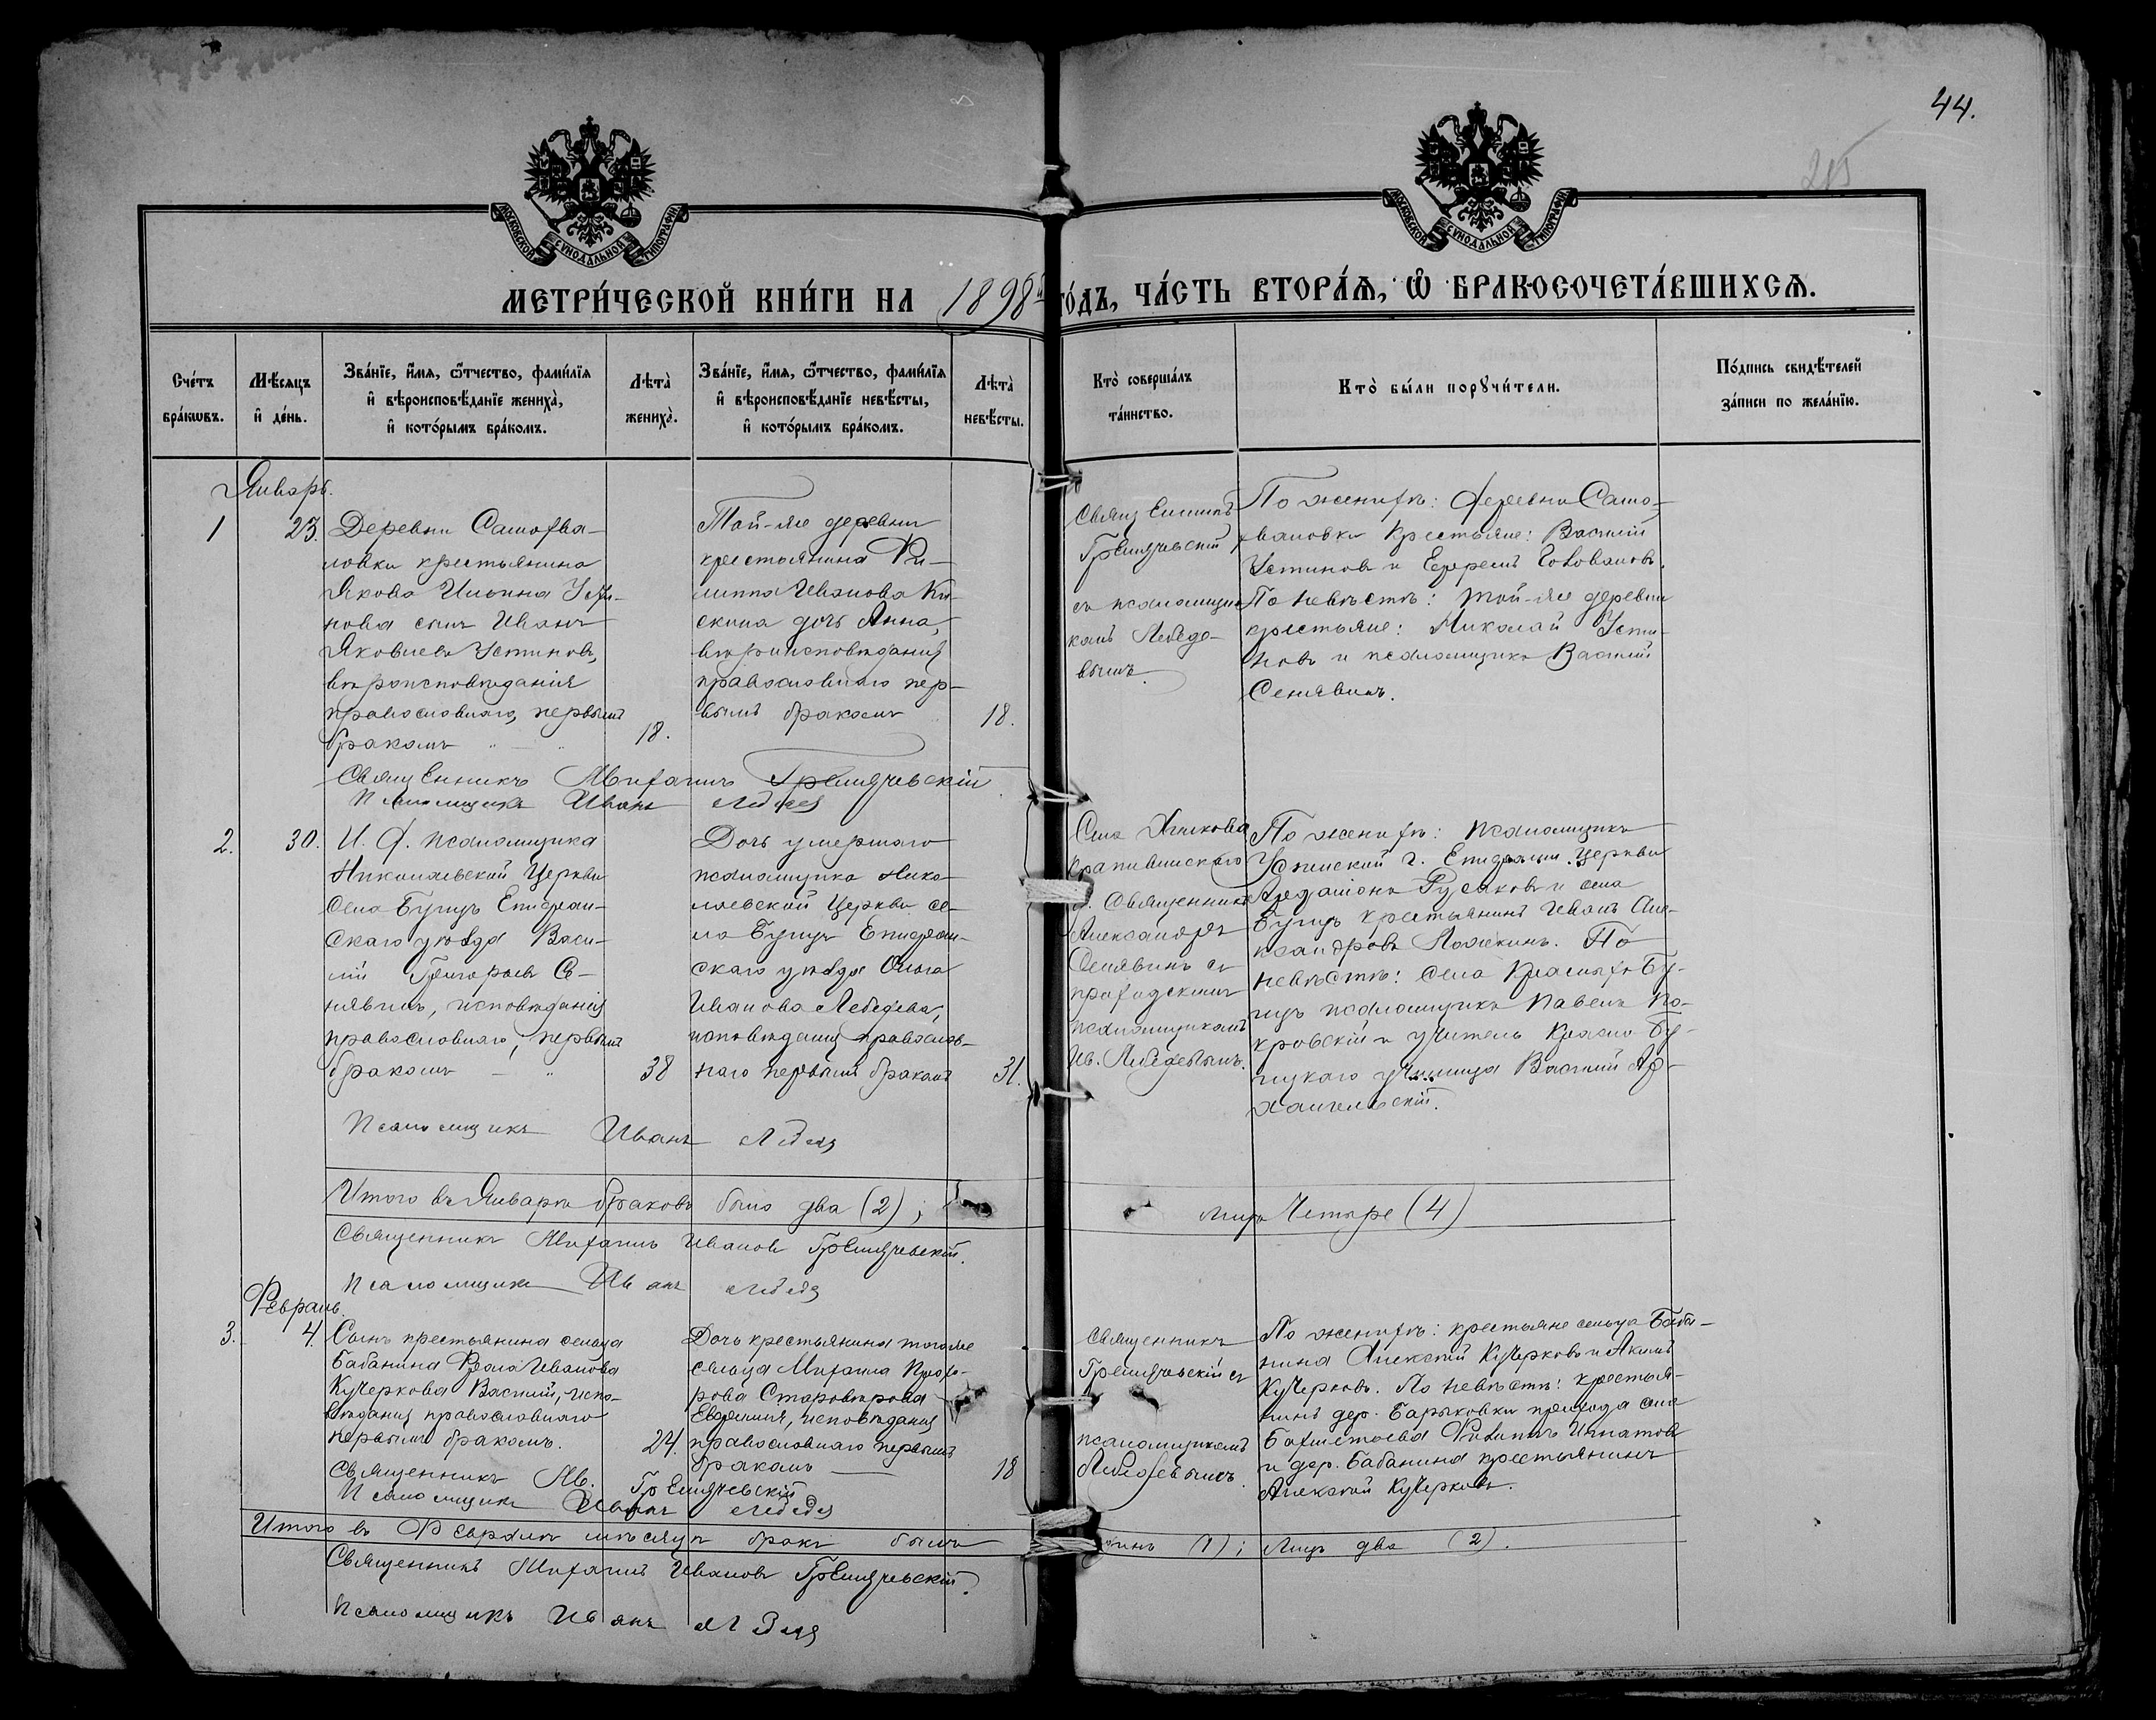 44.
215
МОСКОВСКОЙ СѴНОДАЛЬНОЙ ТИПОГРАФІИ
МОСКОВСКОЙ СѴНОДАЛЬНОЙ ТИПОГРАФІИ
МЕТРИ́ЧЕСКОЙ КНИ́ГИ НА 1898й ГО́ДЪ, ЧА́СТЬ ВТОРА́Ѧ, Ѡ҆ БРАКОСОЧЕТА́ВШИХСѦ.
Сче́тъ бра́кѡвъ.
Мѣ́сяцъ и҆ де́нь.
Зва́нїе, и҆́мя, ѻ҆́тчество, фами́лїя и҆ вѣроисповѣ́данїе жениха̀, и҆ кото́рымъ бра́комъ.
Лѣта̀ жениха̀.
Зва́нїе, и҆́мя, ѻ҆́тчество, фами́лїя и҆ вѣроисповѣ́данїе невѣ́сты, и҆ кото́рымъ бра́комъ.
Лѣта̀ невѣ́сты.
Кто̀ соверша́лъ та́инство.
Кто̀ бы́ли порꙋчи́тели.
По́дпись свидѣ́телей за́писи по жела́нїю.
Январь.
1
23.
Деревни Самохва-
ловки крестьянина
Якова Ильина Усти-
нова сынъ Иванъ
Яковлевъ Устиновъ,
вѣроисповѣданія
православнаго, первымъ
бракомъ
18.
Той-же деревни
крестьянина Фи-
липпа Иванова Ки-
скина дочь Анна,
вѣроисповѣданія
православнаго пер-
вымъ бракомъ
18.
Гремячевскій
съ псаломщи-
комъ Лебеде-
вымъ.
По женихѣ: деревни Само-
хваловки крестьяне: Василій
Устиновъ и Ефремъ Головановъ.
По невѣстѣ: той-же деревни
крестьяне: Николай Усти-
новъ и псаломщикъ Василій
Сенявинъ.
Священникъ Михаилъ Гремячевскій
Псаломщикъ Иванъ Лебедев
2.
30.
И. д. псаломщика
Николаевской Церкви
Села Бучцъ Епифан-
скаго уѣзда Васи-
лій Григорьевъ Се-
нявинъ, исповѣданія
православнаго, первымъ
бракомъ
38
Дочь умершаго
псаломщика Нико-
лаевской Церкви се-
ла Епифан-
скаго уѣзда Ольга
Иванова Лебедева,
исповѣданія православ-
наго первымъ бракомъ
31.
Села
Крапивенскаго
у. Священникъ
Александръ
Сенявинъ съ
приходскимъ
псаломщикомъ
Ив. Лебедевымъ.
По женихѣ: псаломщикъ
Успенской г. Епифани церкви
Русаковъ и села
крестьянинъ Иванъ Але-
ксандровъ Ложкинъ. По
невѣстѣ: села Красныхъ Бу-
чцъ псаломщикъ Павелъ По-
кровскій и учитель Красно-Бу-
чцкаго училища Василій Ар-
хангельскій.
Псаломщикъ Иванъ Лебедев
Итого въ Январѣ браковъ было два (2); лицъ Четыре (4)
Священникъ Михаилъ Ивановъ Гремячевскій.
Псаломщикъ Иванъ Лебедев
Февраль.
3.
4.
Сынъ крестьянина сельца
Бабанина Ивана
Кучеркова Василій, испо-
вѣданія православнаго
первымъ бракомъ.
24.
Дочь крестьянина того-же
сельца Михаила Прохо-
рова Староверова
Евфимія, исповѣданія
православнаго первымъ
бракомъ
18
Священникъ
Гремячевскій съ
псаломщикомъ
Лебедевымъ.
По женихѣ: крестьяне сельца Баба-
нина Алексѣй Кучерковъ и Акимъ
Кучерковъ. По невѣстѣ: крестья-
нинъ дер. Барыковки прихода села
Бахметьева Филиппъ Игнатовъ
и дер. Бабанина крестьянинъ
Алексѣй Кучерковъ.
Священникъ Мих. Гремячевскій
Псаломщикъ Иванъ Лебедев
Итого въ Февралѣ мѣсяцѣ бракъ былъ одинъ (1); Лицъ два (2).
Священникъ Михаилъ Ивановъ Гремячевскій.
Псаломщикъ Иванъ Лебедев